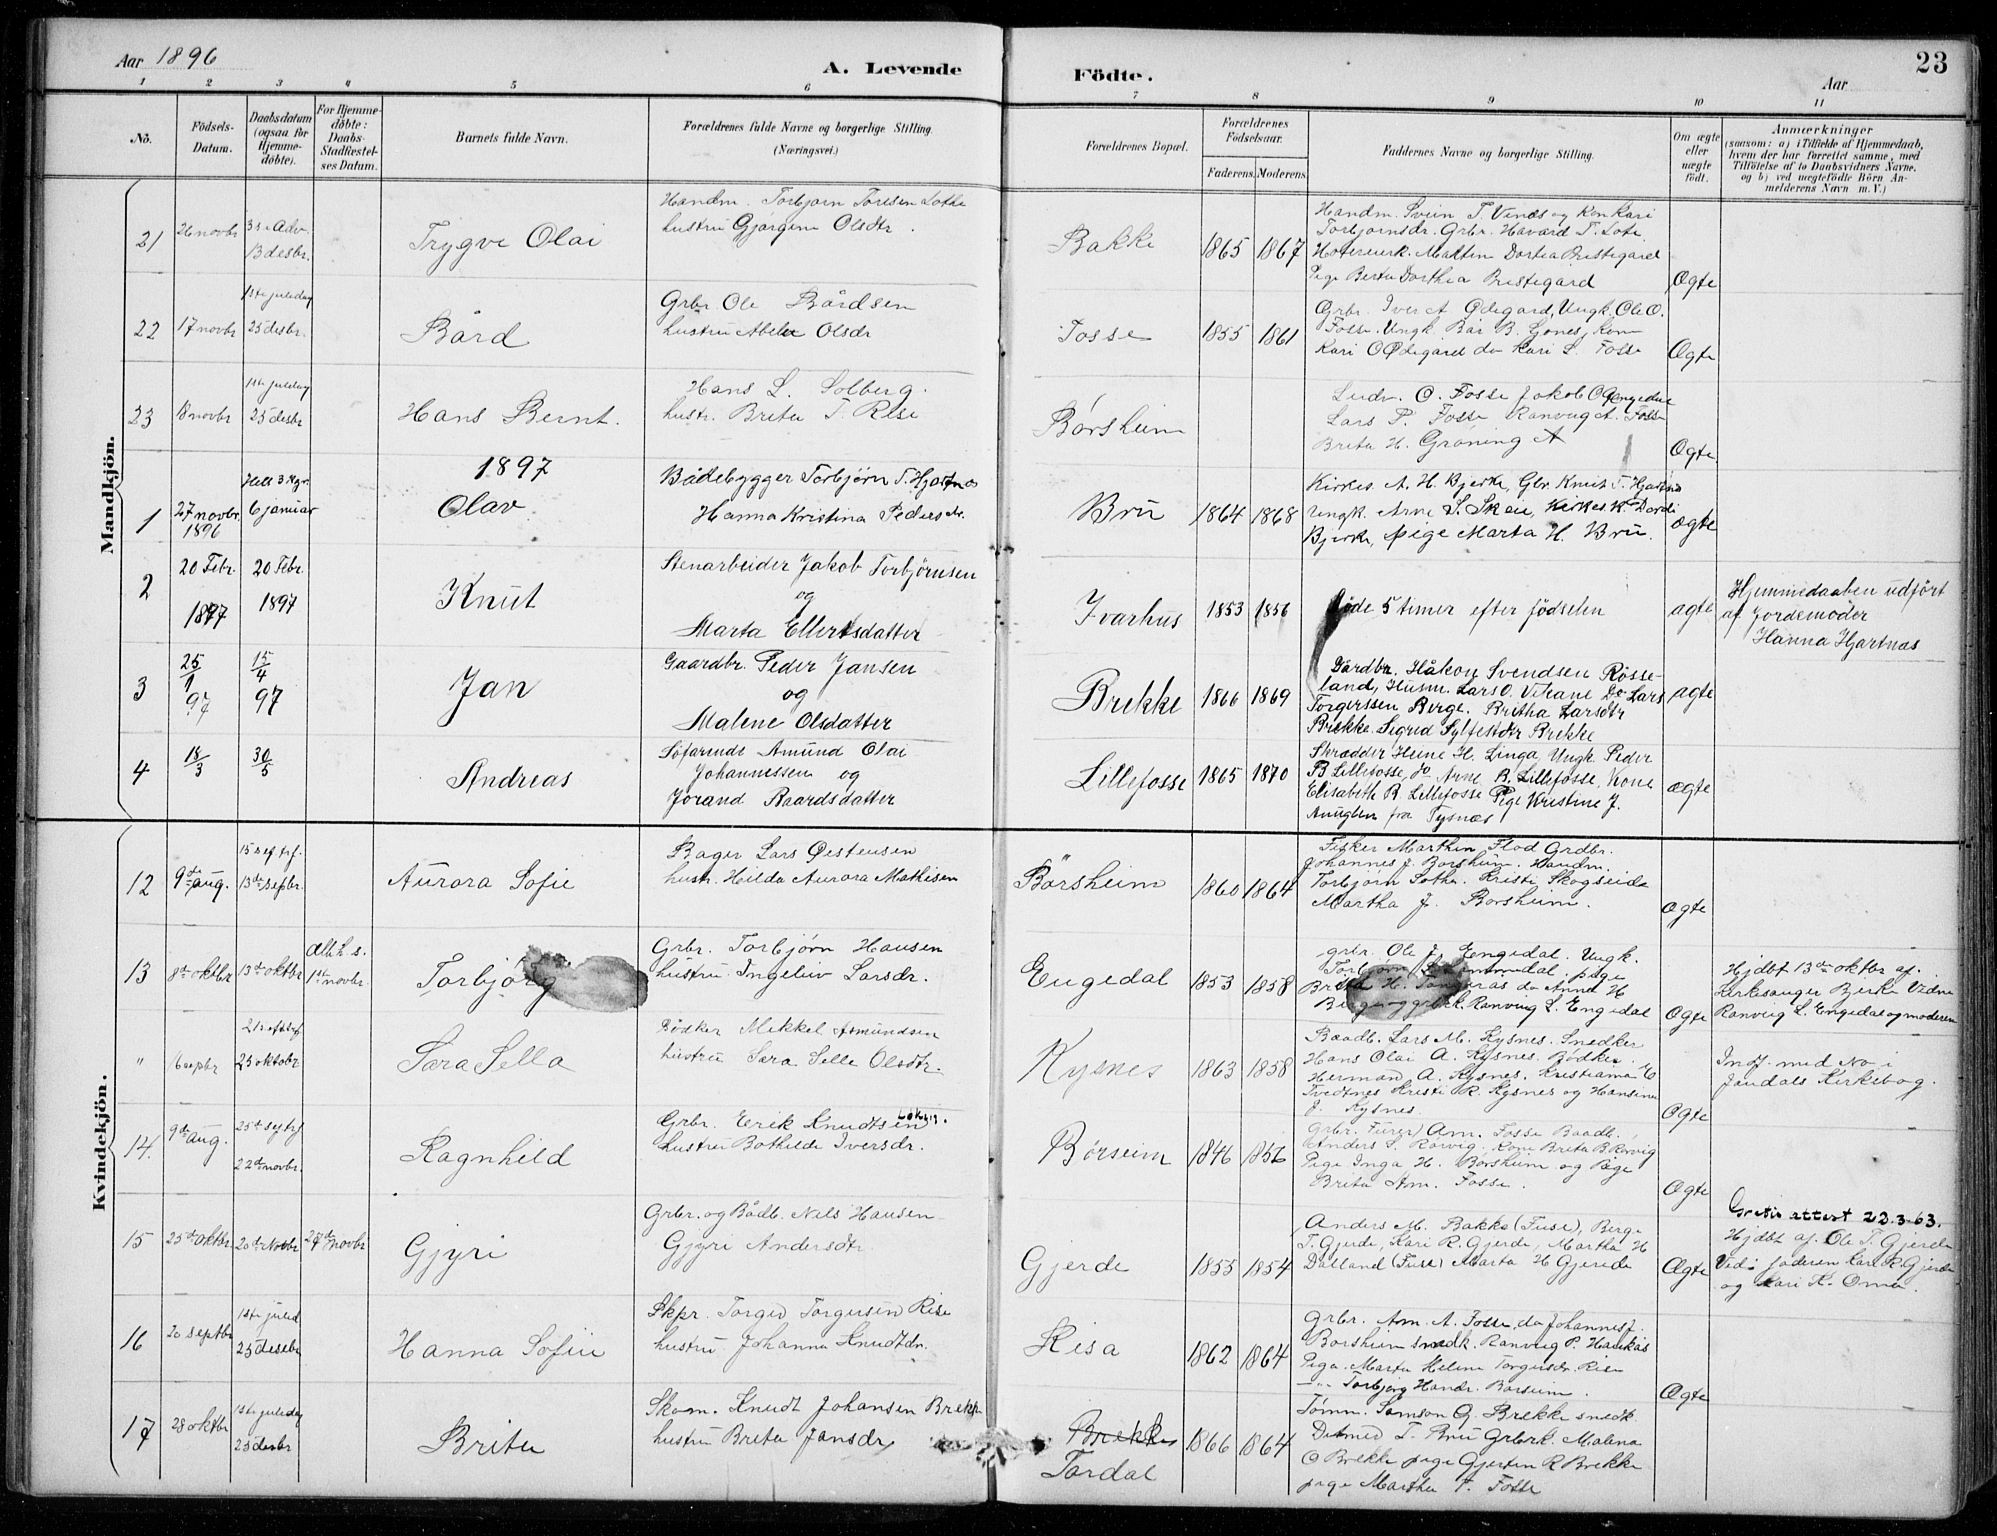 Aar 1896
A. Levende
Födte.
Aar
23
1 2 3 4 5 6 7 8 9 10 11
No.
Födsels-
Datum.
Daabsdatum
(ogsaa for
Hjemme-
döbte).
For Hjemme-
döbte:
Daabs-
Stadfæstel-
ses Datum.
Barnets fulde Navn.
Forældrenes fulde Navne og borgerlige Stilling.
(Næringsvei.)
Forældrenes Bopæl.
Forældrenes
Födselsaar.
Faderens. Moderens.
Faddernes Navne og borgerlige Stilling.
Om ægte
eller
uægte
födt.
Anmærkninger
(saasom: a) i Tilfælde af Hjemmedaab,
hvem der har forrettet samme, med
Tilföielse af to Daabsvidners Navne.
og b) ved uægtefödte Börn An-
melderens Navn m. V.)
Mandkjön.
21
26 novbr
3 s i Adv.
13 desbr.
Trygve Olai
Handm. Torbjorn Toresen Lothe
hustru Gjørgine Olsdtr.
Bakke
1865 1867
Handm. Svein T. Vinæs og Kon Kari
Torbjornsdr. Grbr. Håvard T. Lote
Dortea Prestegard
Pige Berta Dorthea Prestegård
Ægte
22
17 novbr
1ste juledag
25 desbr.
Bård
Grbr Ole Bårdsen
hustru Abelu Olsdr
Fosse
1855 1861
Grbr. Iver A Ødegard, Ungk. Ole O.
Fosse. Ungk. Bår B. Gones, kon
Kari O Ødegård do Kari L. Fosse
Ægte
23
18 novbr
1ste juledag
25 desbr
Hans Bernt.
Hans L. Solberg.
hustr. Brita T. Rise
Børsheim
Ludv. O. Fosse Jakob O Engedal
Lars P. Fosse Ranvug A. Fosse
Brita H. Gröning
Ogte.
1897
1
27 novbr.
1896
Hell 3 Kgr.
6 januar
Olav
Bådebygger Torbjørn T. Hjartnes
Hanna Kristina Pedersdr.
Brü
1864 1868
Kirkes. A. H. Bjerke, Gbr. Knut T. Hjartnes
Ungk. Arne S. Skeie, Kirkes.k. Dordi
Bjerke, pige Marta H. Brü.
ægte
2
20 Febr.
1897
20 Febr.
1897
Knut
Stenarbeider Jakob Torbjörnsen
og
Marta Ellertsdatter
Ivarhus
1853 1856
døde 5 timer efter födselen
ægte
Hjemmedaaben udfört
af Jordemoder
Hanna Hjartnæs
3
25/1
97
15/4
97
Jan
Gaardbr. Peder Jansen
og
Malene Olsdatter
Brekke
1866 1869
Gårdbr. Håkon Svendsen Røsse-
land, Husm. Lars O. Vikane Do Lars
Torgerssen Berge. Britha Larsdtr
Brekke. Sigrid Sylfestdtr Brekke
ægte
4
18/3
30/5
Andreas
Söfarende Amund Olai
Johannessen og
Jorand Baardsdatter
Lillefosse
1865 1870
Skrædder Heine H. Linga Ungk Peder
B Lillefosse, do Arne B. Lillefosse, Kone
Elisabeth B. Lillefosse Pige Kristine J.
Anuglen fra Tysnæs
ægte
Kvindekjön.
12
9de aug.
15 s ef trf.
13de sepbr.
Aurora Sofie
Bager Lars Øestensen
hustr. Hilda Aurora Mathisen
Børsheim
1860 1864
Fisker Marthin Flod Grdbr.
Johannes J. Borsheim. Handm.
Torbjørn Lothe. Kristi Skogseide
Martha J. Borsheim.
Ægte
13
8de oktbr
13de oktbr
Alle h. s.
1ste novbr.
Torbjørg
Grbr. Torbjørn Hansen
hustru. Ingeleiv Larsdr.
Engedal
1853 1858
grbr. Ole J. Engedal. Ungk.
Torbjørn pige
Brita H. do Anna H
Ranvug L. Engedal
Ægte
Hjdbt 13de oktbr af.
Kirkesanger Bjerke Vidne
Ranvug L. Engedal og moderen
"
16 sepbr
21 s eftrf
25 oktobr
Sara Sella
Bødker Mikkel Asmundsen
hustru Sara Selle Olsdtr.
Kysnes
1863 1858
Baadb. Lars M. Kysnes. Snedker
Hans Olai A. Kysnes. Bödker.
Herman A. Kysnes. Kristiama C
Tvedtnes Kristi R. Kysnes og Hansina
J. Kysnes
Ægte
Indf. med No i
Jondals Kirkebog.
14.
9de aug.
25de s ef trf
22de novbr.
Ragnhild
Grbr. Erik Knudtsen
hustru Bothilde Iversdr.
Börseim
1846 1856
Grbr. Am. Fosse Baadb.
Anders L. Rørvig, Kone Brita B. Rørvig
Pige Inga H. Borsheim og Pige
Brita Am. Fosse.
Ægte
15
25de oktbr
20de Novbr
24de novbr
Gjyri
Grbr. og Bådb. Nils Hansen
Gjyri Andersdtr.
Gjerde
1855 1854
Anders M. Bakke (Fuse), Berge
T. Gjerde, Kari R. Gjerde, Martha H
Dalland (Fuse) Marta H Gjerede
Ægte
Gratis attest 22.3.63.
Hjdbt af. Ole T. Gjerde
Vid: faderen Kari R. Gjerde
og Kari K. Oma.
16
20 septbr
1ste juled
25 desebr
Hanna Sofie
Skpr. Torger Torgersen Rise
hustru Johanna Knudtdr.
Risa
1862 1864
Grbr. Am. A. Fosse do Johannes J.
Borsheim smedk. Ranvug P. Haukås
Pige. Marta Helene Torgersdr. Rise
—"— Torbjorg Handr. Borseim.
Ægte
17
28 oktbr
1ste juledag
25 desbr
Brita
Skom. Knudt Johansen Brekk
hustru Brita Jansdr
Brekke
Tordal
1866 1864
Tömn. Samson G. Brekke smedk.
Detmed T. Brü Grbrk. Malena
O Brekke pige Gjerten R Brekke
pige Martha T. Fosse